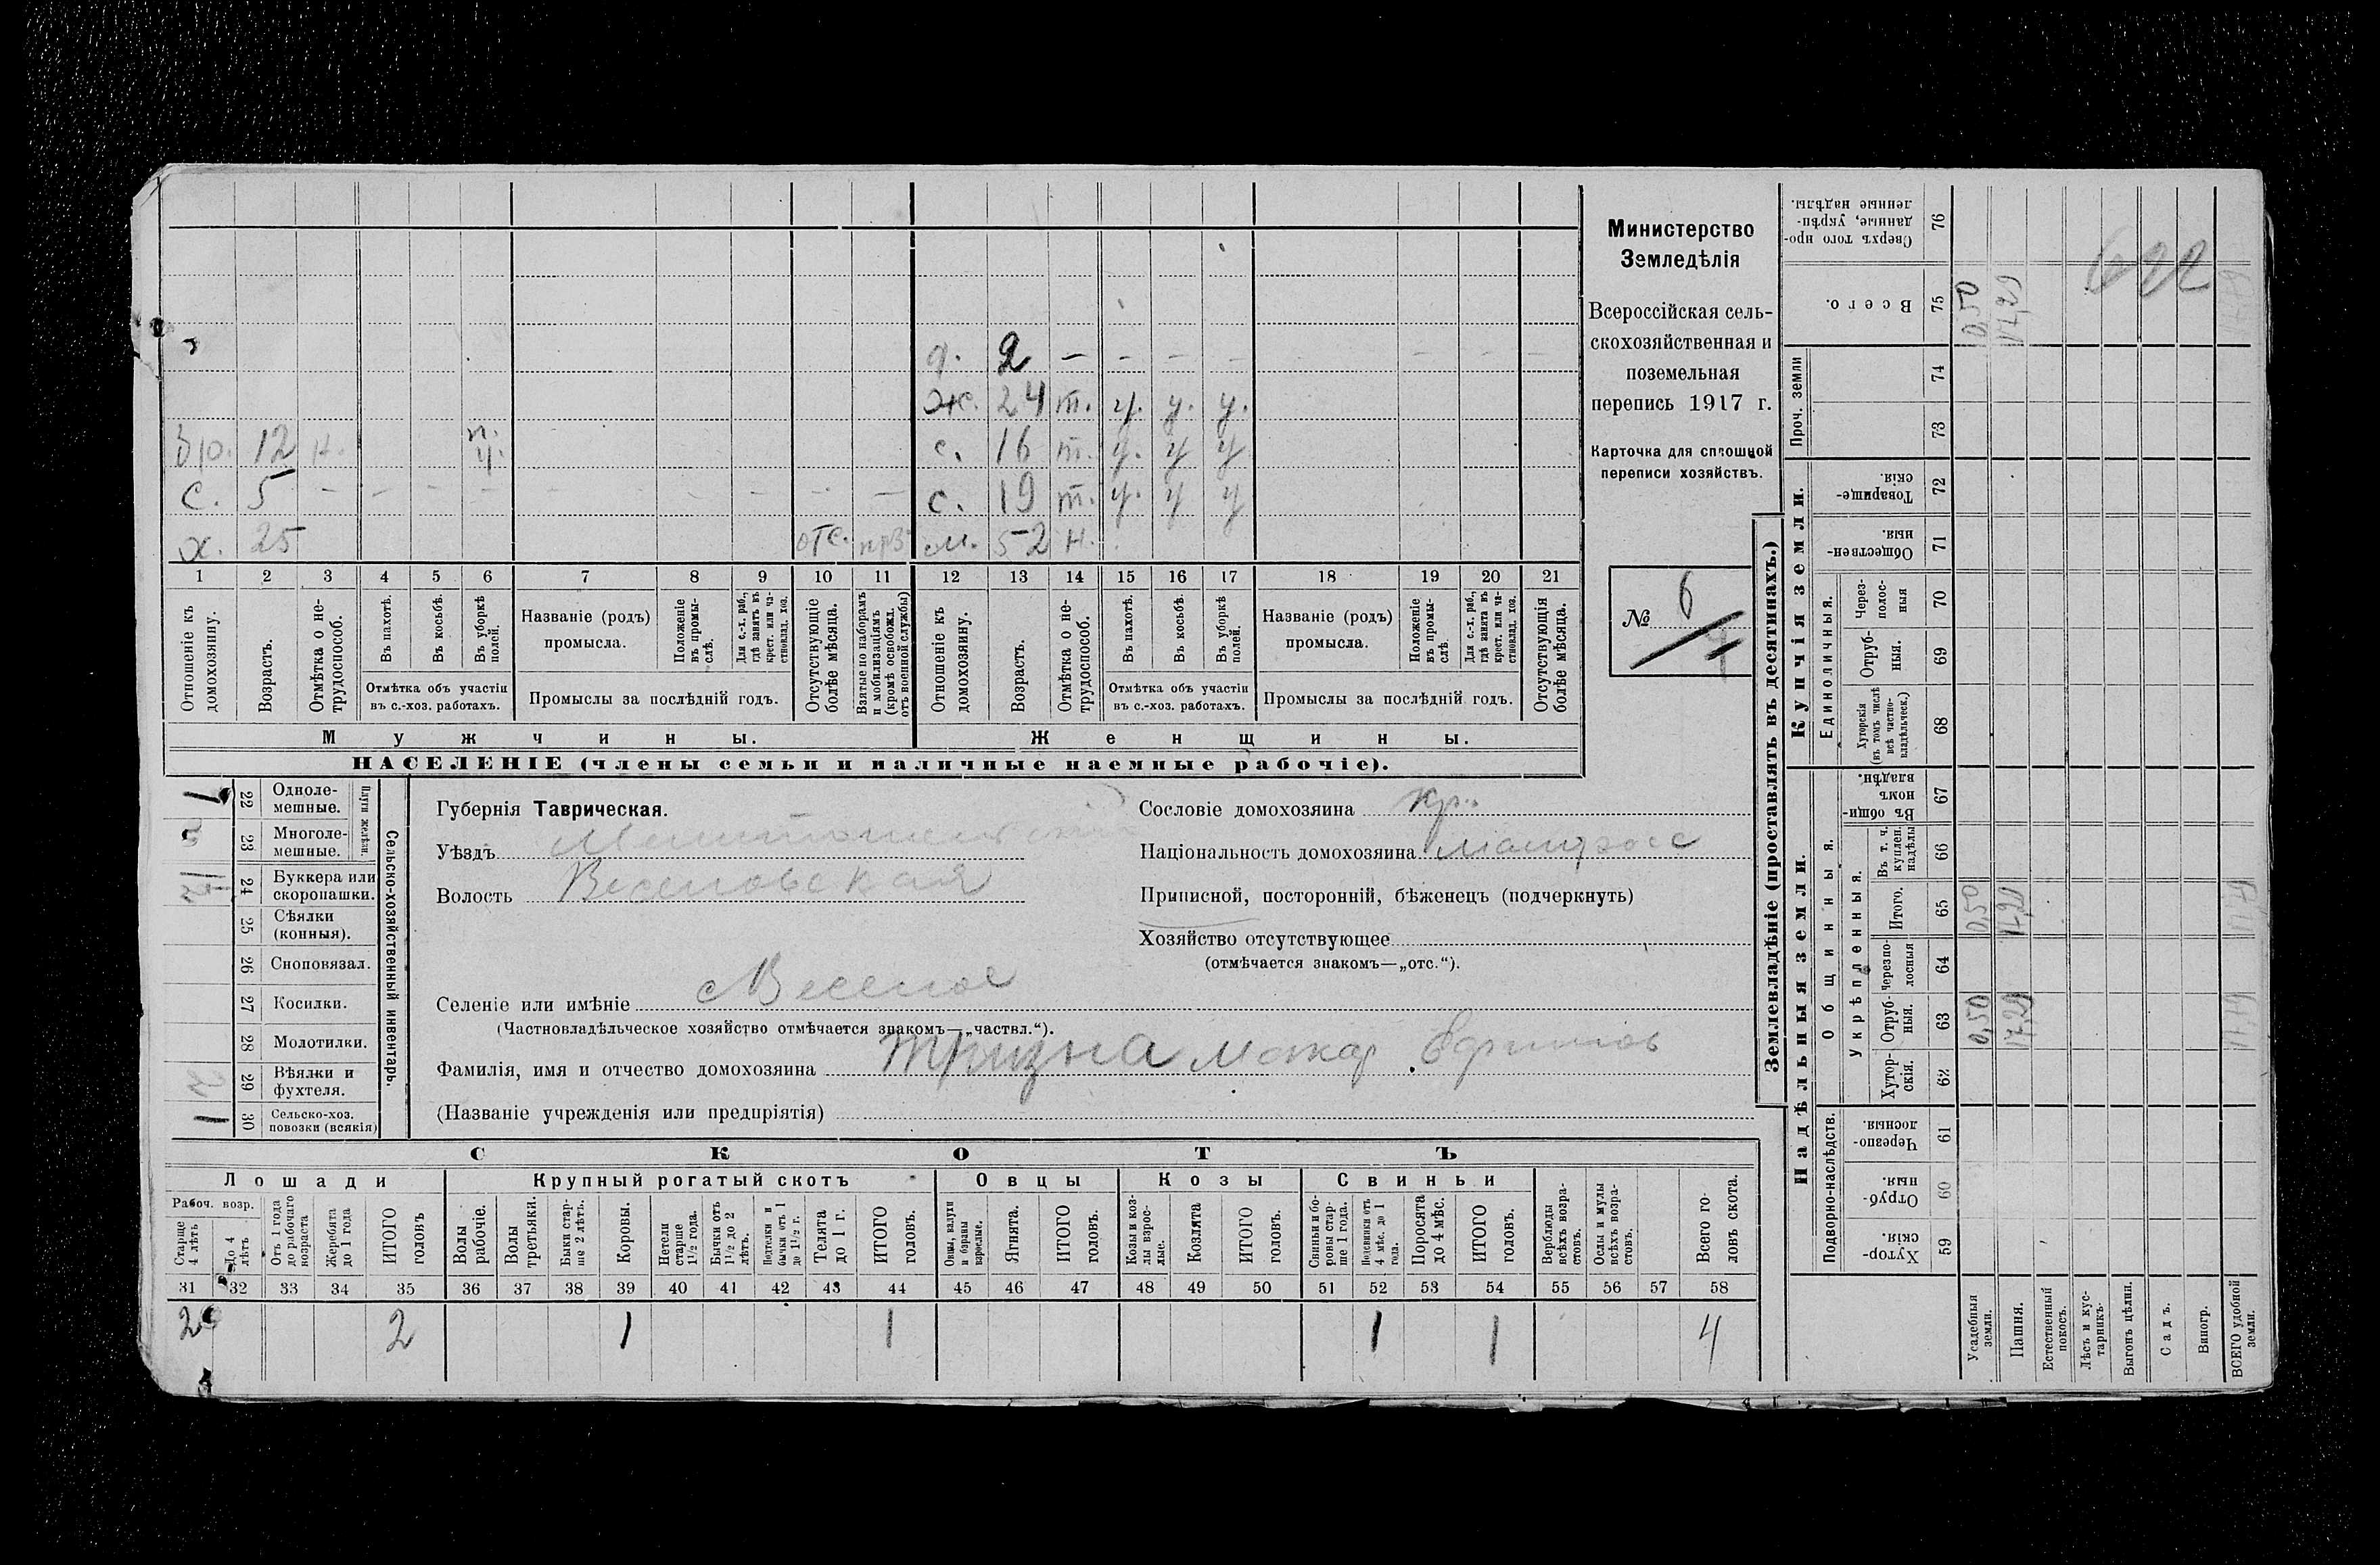 д. 2 — — — — — — —
ж. 24 т. у. у. у.
бр. 12 н. п. у. с. 16 т. у. у у
с. 5 — — — — — — — — — с. 19 т. у. у у
х. 25 отс. м. 52 н.
1 2 3 4 5 6 7 8 9 10 11 12 13 14 15 16 17 18 19 20 21
Отношеніе къ домохозяину.
Возрастъ.
Отмѣтка о не-трудоспособ.
Въ пахотѣ.
Въ косьбѣ.
Въ уборкѣ полей.
Отмѣтка объ участіи въ с.-хоз. работахъ.
Названіе (родъ) промысла.
Положеніе въ промы-слѣ.
Для с.-х. раб., гдѣ занятъ въ крест. или ча-стновлад. хоз.
Промыслы за послѣдній годъ.
Отсутствующіе болѣе мѣсяца.
Взятые по наборамъ и мобилизаціямъ (кромѣ освобожд. отъ военной службы)
Отношеніе къ домохозяину.
Возрастъ.
Отмѣтка о не-трудоспособ.
Въ пахотѣ.
Въ косьбѣ.
Въ уборкѣ полей.
Отмѣтка объ участіи въ с.-хоз. работахъ.
Названіе (родъ) промысла.
Положеніе въ промы-слѣ.
Для с.-х. раб., гдѣ занята въ крест. или ча-стновлад. хоз.
Промыслы за послѣдній годъ.
Отсутствующія болѣе мѣсяца.
Мужчины. Женщины.
НАСЕЛЕНІЕ (члены семьи и наличные наемные рабочіе).
Министерство
Земледѣлія
Всероссійская сель-
скохозяйственная и
поземельная
перепись 1917 г.
Карточка для сплошной
переписи хозяйствъ.
№ 6
1 22 Одноле-мешные.
23 Многоле-мешные.
Плуги желѣзн.
24 Буккера или скоропашки.
25 Сѣялки (конныя).
26 Сноповязал.
27 Косилки.
28 Молотилки.
29 Вѣялки и фухтеля.
1 30 Сельско-хоз. повозки (всякія)
Сельско-хозяйственный инвентарь.
Губернія Таврическая.
Уѣздъ Мелитопольскій
Волость Веселовская
Сословіе домохозяина кр.
Національность домохозяина малоросс
Приписной, посторонній, бѣженецъ (подчеркнуть)
Хозяйство отсутствующее
(отмѣчается знакомъ—„отс.“).
Селеніе или имѣніе с Веселое
(Частновладѣльческое хозяйство отмѣчается знакомъ—„частвл.“).
Фамилія, имя и отчество домохозяина Тризна Макар Ефимов
(Названіе учрежденія или предпріятія)
СКОТЪ
Лошади Крупный рогатый скотъ Овцы Козы Свиньи
Рабоч. возр.
Старше 4 лѣтъ
До 4 лѣтъ
Отъ 1 года до рабочаго возраста
Жеребята до 1 года
ИТОГО головъ
Волы рабочіе.
Волы третьяки.
Быки стар-ше 2 лѣтъ.
Коровы.
Нетели старше 1½ года.
Бычки отъ 1½ до 2 лѣтъ.
Подтелки и бычки отъ 1 до 1½ г.
Телята до 1 г.
ИТОГО головъ.
Овцы, валухи и бараны взрослые.
Ягнята.
ИТОГО головъ.
Козы и коз-лы взрос-лые.
Козлята
ИТОГО головъ.
Свиньи и бо-ровы стар-ше 1 года.
Подсвинки отъ 4 мѣс. до 1 года.
Поросята до 4 мѣс.
ИТОГО головъ.
Верблюды всѣхъ возра-стовъ.
Ослы и мулы всѣхъ возра-стовъ.
Всего го-ловъ скота.
31 32 33 34 35 36 37 38 39 40 41 42 43 44 45 46 47 48 49 50 51 52 53 54 55 56 57 58
2 2 1 1 1 1 4
Землевладѣніе (проставлять въ десятинахъ.)
Надѣльныя земли. Купчія земли. Проч. земли
Подворно-наслѣдств. Общинныя. Единоличныя.
Укрѣпленныя.
Хутор-скія. 59
Отруб-ныя. 60
Черезпо-лосныя. 61
Хутор-скія. 62
Отруб-ныя. 63 0,50 17,29
Черезпо-лосныя 64
Итого. 65 0,50 17,29
Въ т. ч. куплен. надѣлы 66
Въ общи-номъ владѣн. 67
Хуторскія (въ томъ числѣ всѣ частно-владѣльческ.) 68
Отруб-ныя. 69
Через-полос-ныя 70
Обществен-ныя. 71
Товарище-скія. 72
73
74
Всего. 75 0,50 17,29
Сверхъ того про-данные, укрѣп-ленные надѣлы. 76
622
Усадебныя земли.
Пашня.
Естественный покосъ.
Лѣсъ и кус-тарникъ.
Выгонъ цѣлин.
Садъ.
Виногр.
ВСЕГО удобной земли.